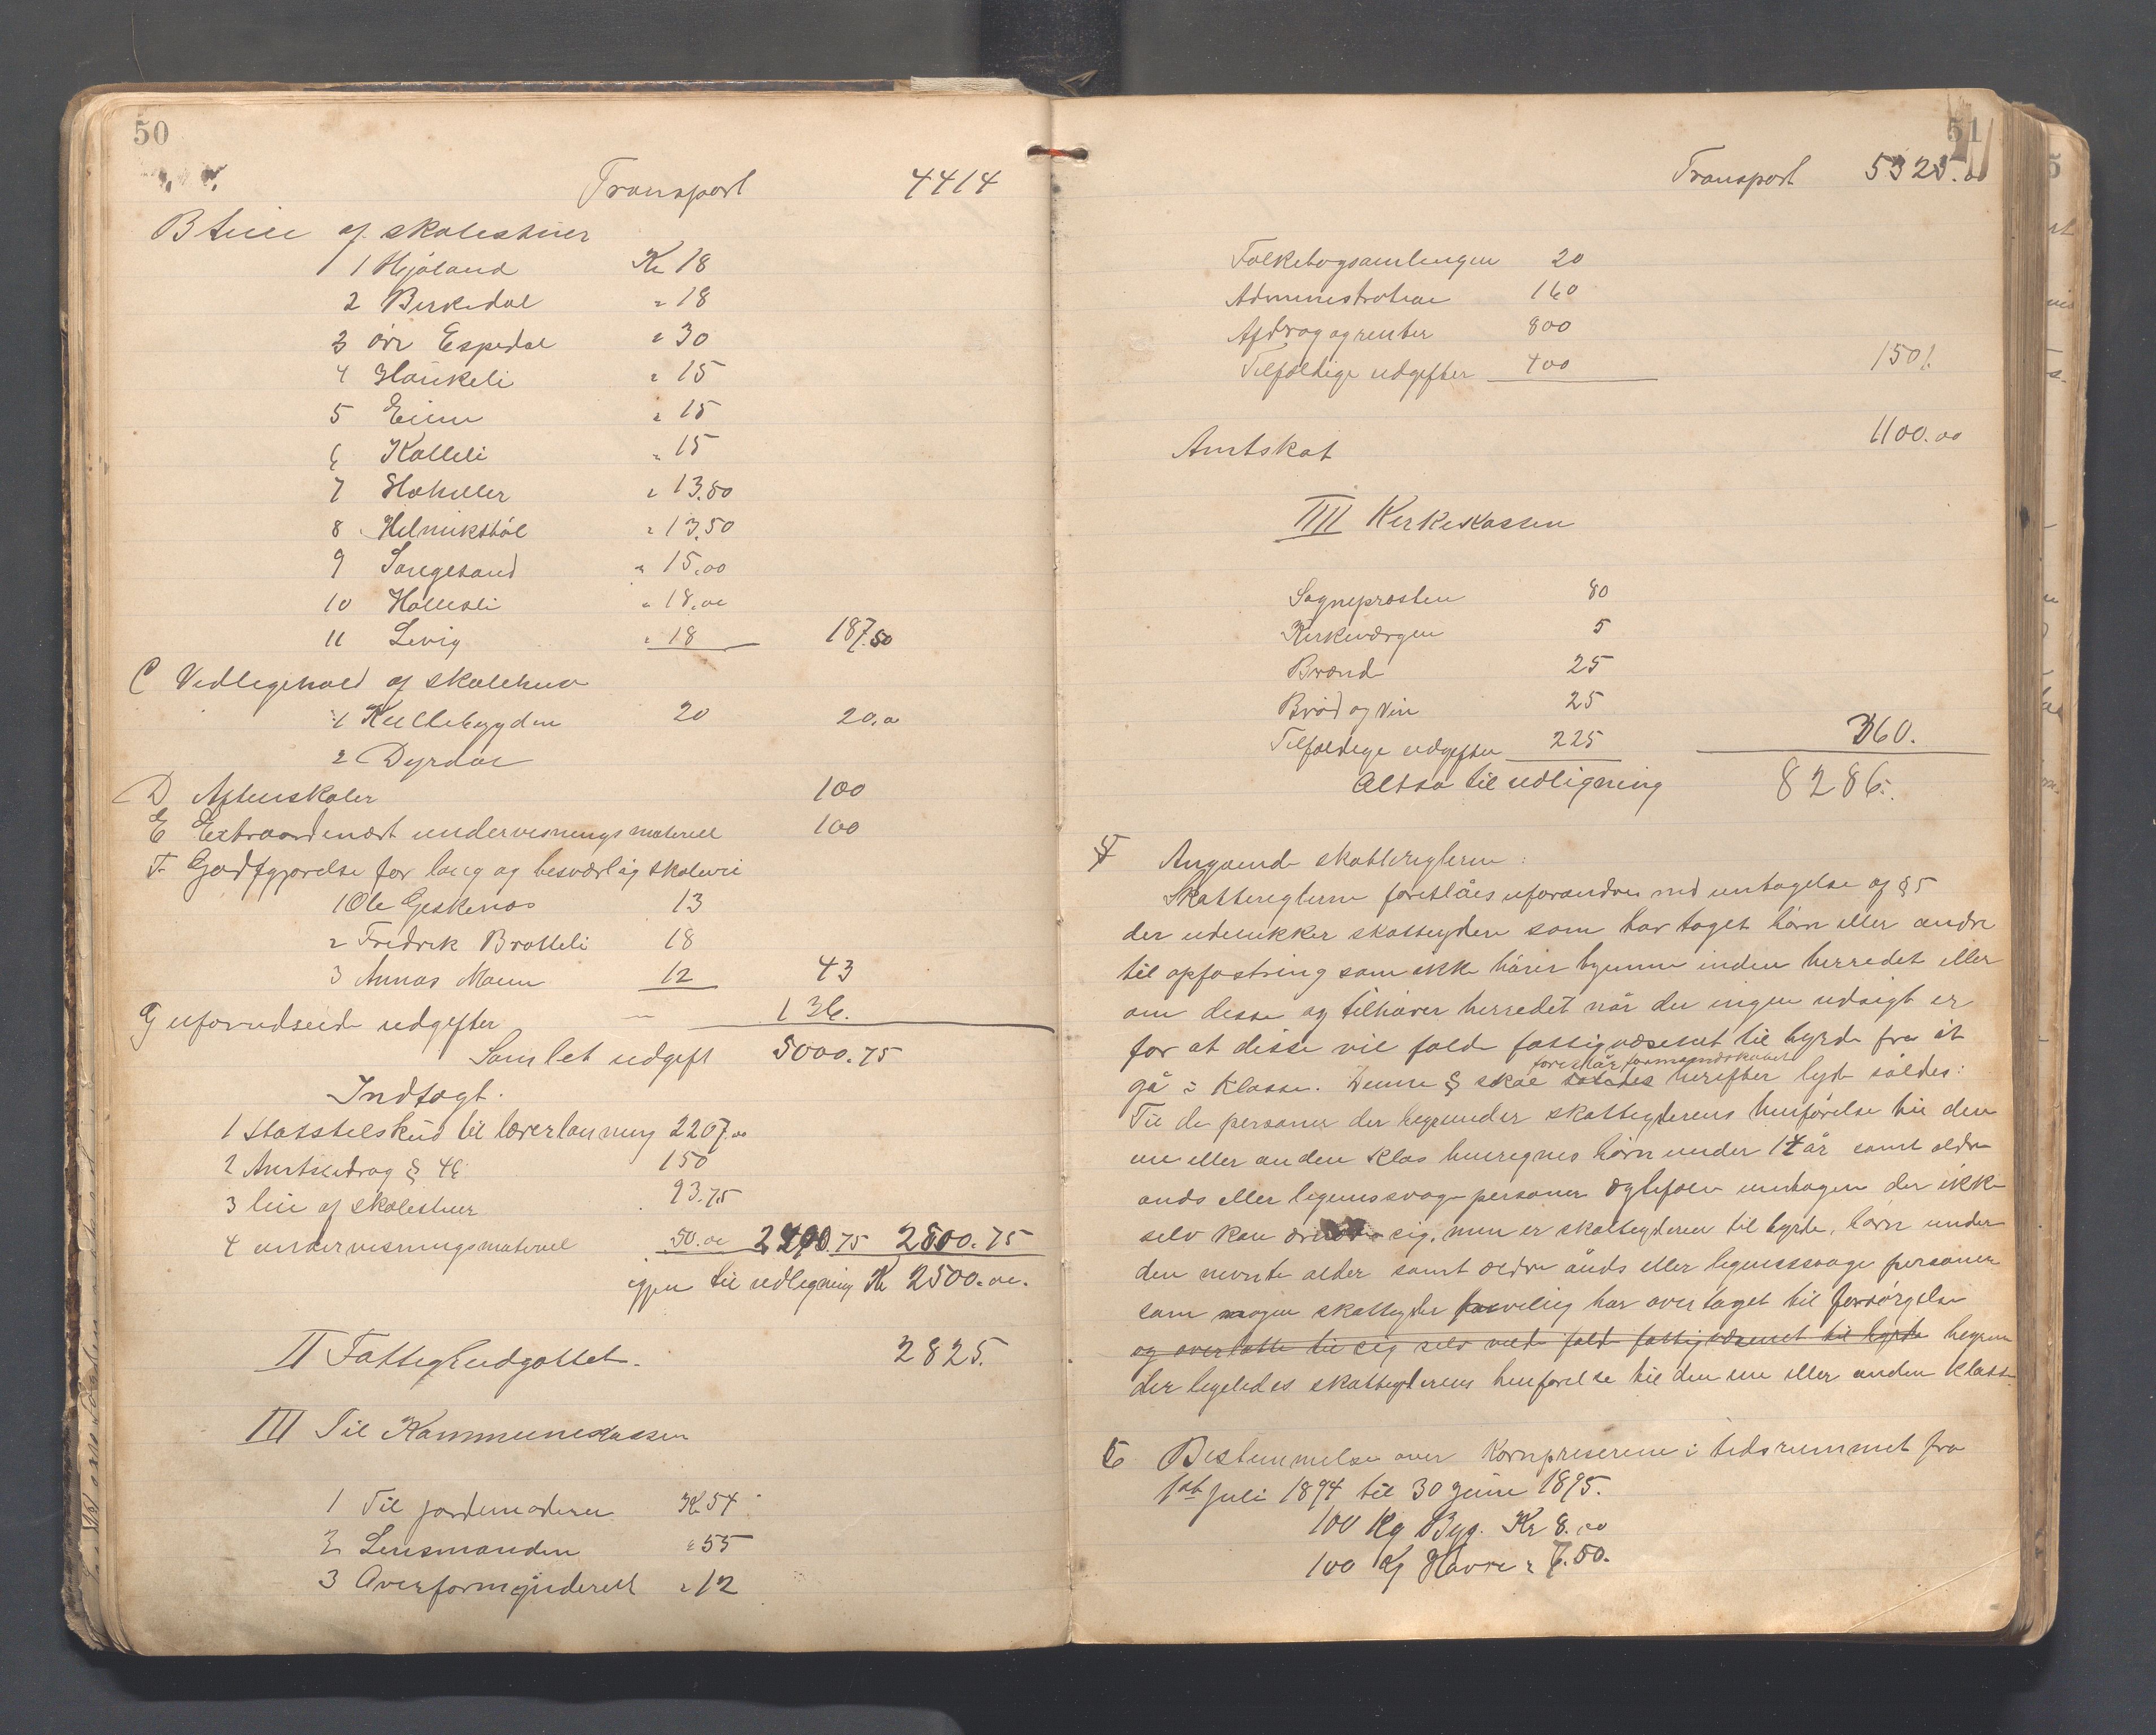 50
Transport 4414
B Leie af skolestuer
1 Hjøland Kr 18
2 Birkedal " 18
3 övr Espedal " 30
4 Haukeli " 15
5 Eiun " 15
6 Kolleli " 15
7 Hohiller " 13.50
8 Helmikstøl " 13.50
9 Songesand " 15.00
10 Hollesli " 18.00
11 Levig " 18 187.50
C Vedligehold af skolehuse
1 Kullebygden 20 20.00
2 Dyrdal
D Aftenskoler 100
E Extraordinært undervisningsmateriell 100
F Godtgjørelse for lang og besværlig skolevei
1 Ole Geskenos 13
2 Fredrik Bratteli 18
3 Annas Moen 12 43
G uforudseede udgifter — 136.
Samlet udgift 5000.75
Indtægt.
1 Statstilskud til lærerlønning 2207.00
2 Amtsbidrag § 46 150
3 leie af skolestuer 93.75
4 undervisningsmateriel 50.00 2500.75 2500.75
igjen til udligning Kr 2500.00.
II Fattigbudgettet. 2825.
III Til Kommunekassen
1 Til jordemoderen Kr 54
2 Lensmanden " 55
3 Overformynderiet " 12
51
Transport 5325.00
Folkebogsamlingen 20
Administration 160
Afdrag og renter 800
Tilfældige udgifter 400 1501.
Amtskat 1100.00
IIII Kirkekassen
Sognepresten 80
Kirkeværgen 5
Brænd 25
Brød og Vin 25
Tilfældige udgifter 225 360.
Altsaa til udligning 8286.
Angaaende skattereglerne:
Skattereglerne foreslåes uforandret med undtagelse af § 5
der udelukker skatteydere som har taget børn eller andre
til opfostring som ikke hører hjemme inden herredet eller
om disse og tilhører herredet når der ingen udsigt er
for at disse vil falde fattigvæsenet til byrde fra at
foreslår formandskabet
gå i Klasse. Denne § skal herefter lyde således:
Til de personer der begrunder skatteyderens henførelse til den
ene eller anden Klas henregnes børn under 14 år samt ældre
ånds eller legemssvage personer ægtefolk undtagen der ikke
selv kan ernære sig, men er skatteyderen til byrde, børn under
den nevnte alder samt ældre ånds eller legemssvage personer
som nogen skatteyder frivilig har overtaget til forsørgelse
og overlatte til sig selv vilde falde fattigvæsenet til byrde begrun
der ligeledes skatteyderens henførelse til den ene eller anden Klasse
6 Bestemmelse over Kornpriserne i tidsrummet fra
1ste Juli 1894 til 30 Juni 1895.
100 Kg Byg. Kr 8.00
100 Kg Havre " 7.50.